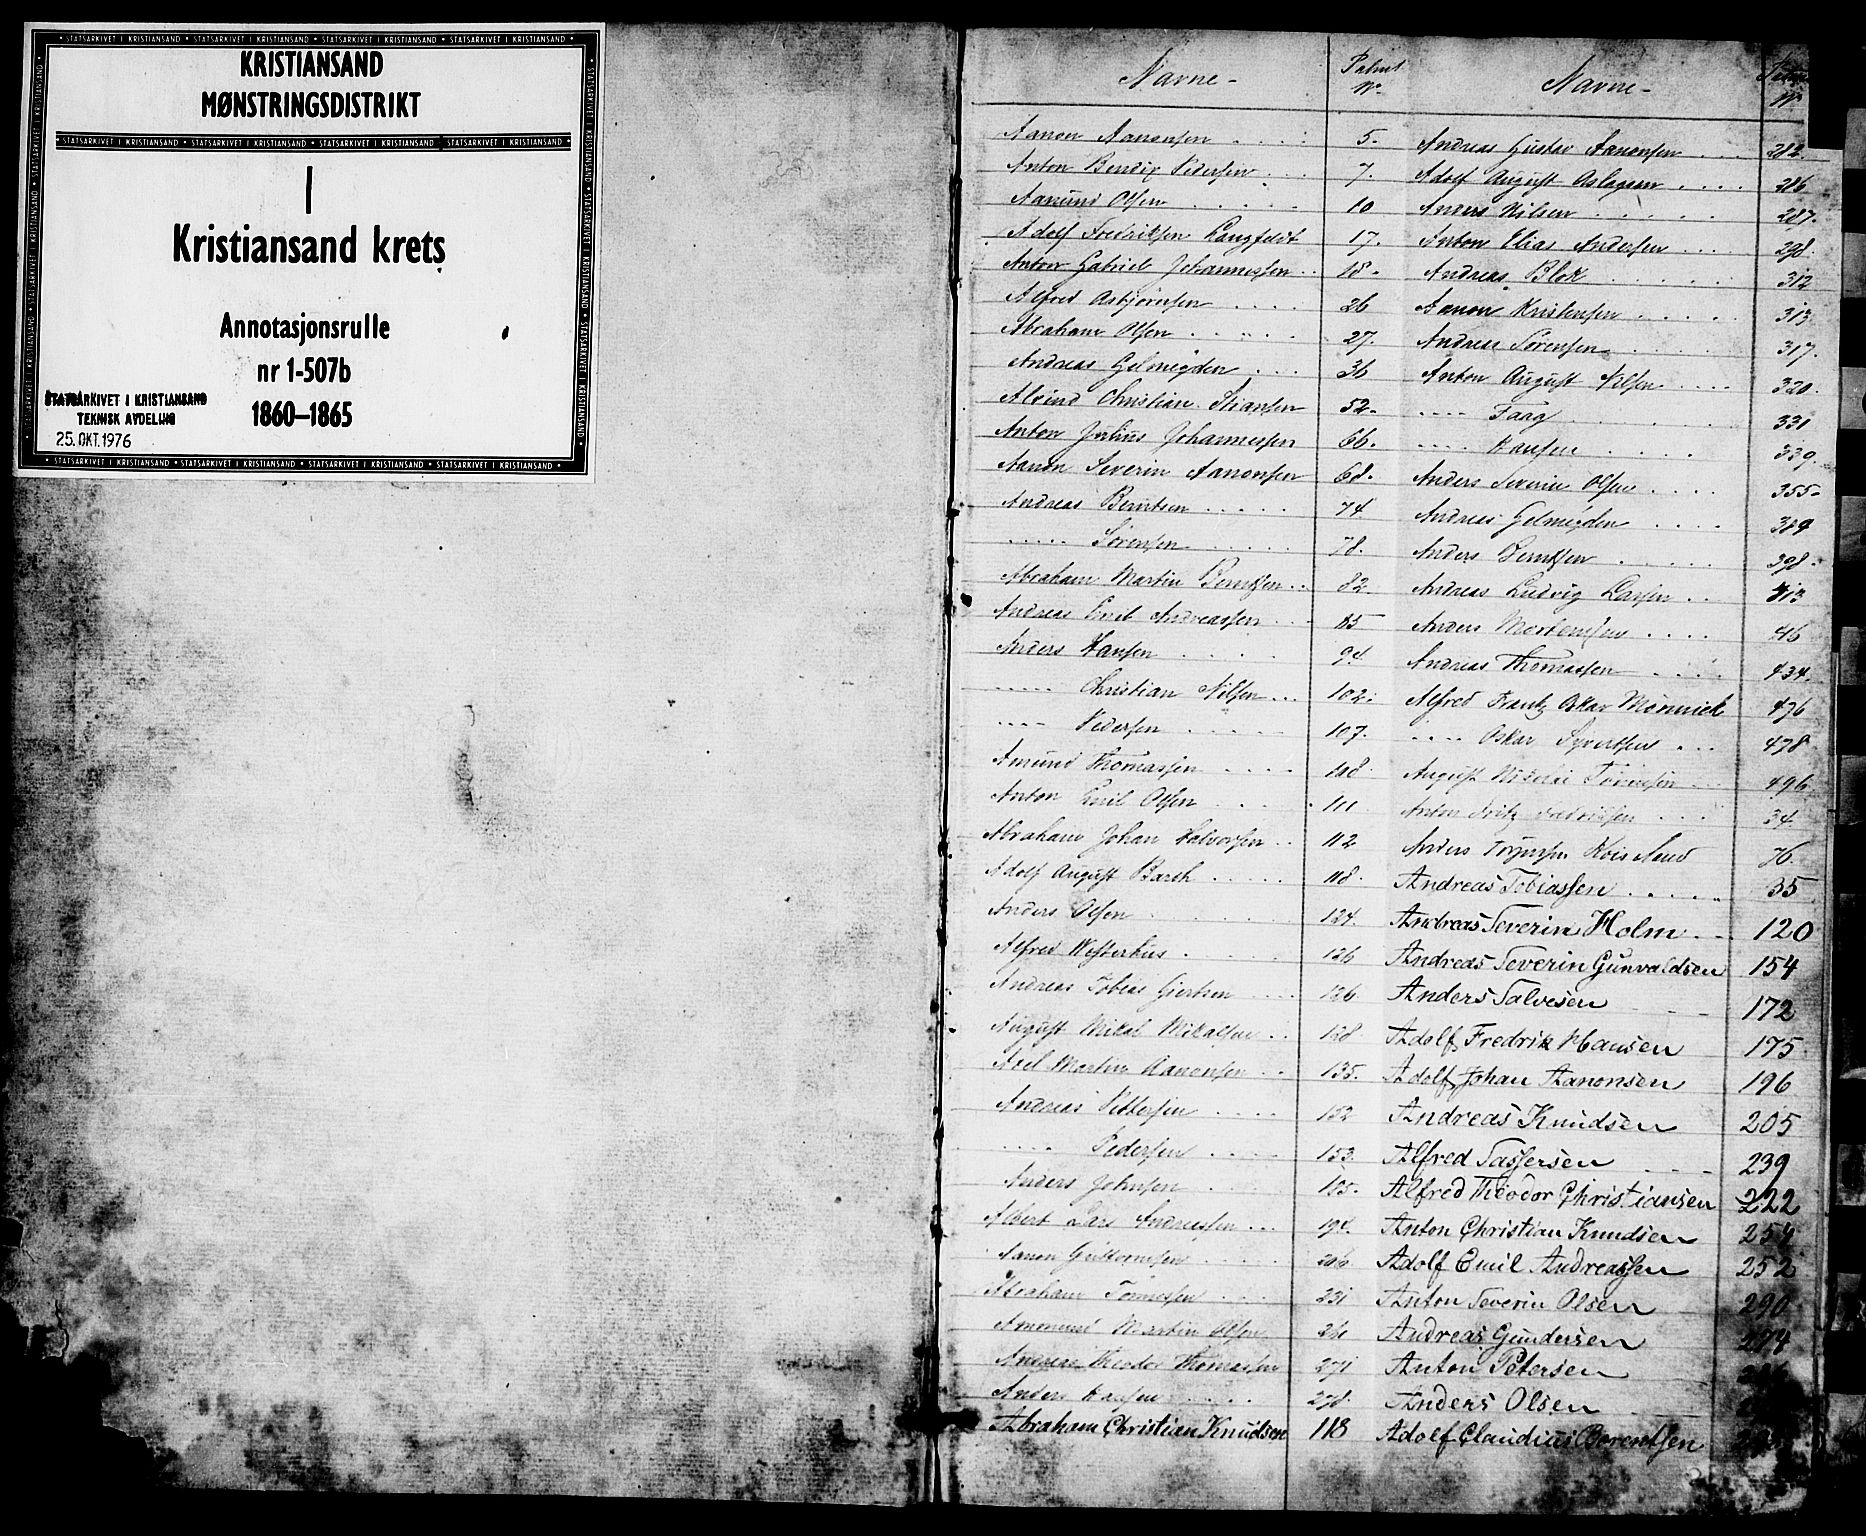 STATSARKIVET I KRISTIANSAND
KRISTIANSAND
MØNSTRINGSDISTRIKT
I
Kristiansand krets
Annotasjonsrulle
nr 1-507b
1860–1865
STATSARKIVET I KRISTIANSAND
TEKNISK AVDELING
25. OKT. 1976
Navne -
Patent
No
Aanon Aanonsen 5.
Anton Bendix Pedersen 7.
Aanund Olsen 10
Adolf Fredriksen Langfeldt 17.
Anton Gabriel Johannessen 18.
Alfred Asbjørnsen 26
Abraham Olsen 27.
Andreas Gelmeyden 36
Christian Stiansen 52.
Anton Julius Johannessen 66.
Aanon Severin Aanonsen 68.
Andreas Berntsen 74.
----- Sørensen 78.
Abraham Martin Berntsen 82
Andreas Emil Andreassen 85
Anders Hansen 94.
----- Christian Nilsen 102.
---- Pedersen 107.
Amund Thomassen 108.
Anton Emil Olsen 111
Abraham Johan Halvorsen 112
Adolf August Barth 118.
Anders Olsen 124.
Alfred Westerhus 126
Andreas Tobias Giertsen 126
August Mikal Mikalsen 128
Abel Martin Aanonsen 135.
Andreas Pettersen 152
---- Pedersen 153.
Anders Johnsen
Albert Lars Andreassen 198.
Aanon Guttormsen 206
Abraham Tønnessen 231
Martin Olsen
Andreas Theodor Thomassen 271
Anders Hansen 278.
Abraham Christian Knudsen 118
Navne -
No
Andreas Gustav Aanonsen 282.
Adolf August Aslagsen 286
Anders Nilsen 287.
Anton Elias Andersen 298.
Andreas Blok 312
Aanon Kristensen 313
Andreas Sørensen 317.
Anton August Nilsen 320.
---- Faag 331
---- Hansen 339.
Anders Severin Olsen 355.
Andreas Gelmeyden 389
Anders Berntsen 398.
Andreas Ludvig Larsen 413
Anders Mortensen 416
Andreas Thomassen 434.
Alfred Frantz Oskar 476
---- Oskar Syvertsen 478
August Nikolai Tønnesen 496
Anton Fritz Fredriksen 34.
Anders 76.
Andreas Tobiassen 35
Andreas Severin Holm 120
Andreas Severin Gunvaldsen 154
Anders Salvesen 172
Adolf Fredrik Hansen 175
Adolf Johan Aanonsen 196
Andreas Knudsen 205
Alfred Tassersen 239
Alfred Theodor Christiansen 222
Anton Christian Knudsen 254
Adolf Emil Andreassen 252
Anton Severin Olsen 290
Andreas Gundersen 274
Anton Petersen
Anders Olsen
Adolf Claudius Berentsen